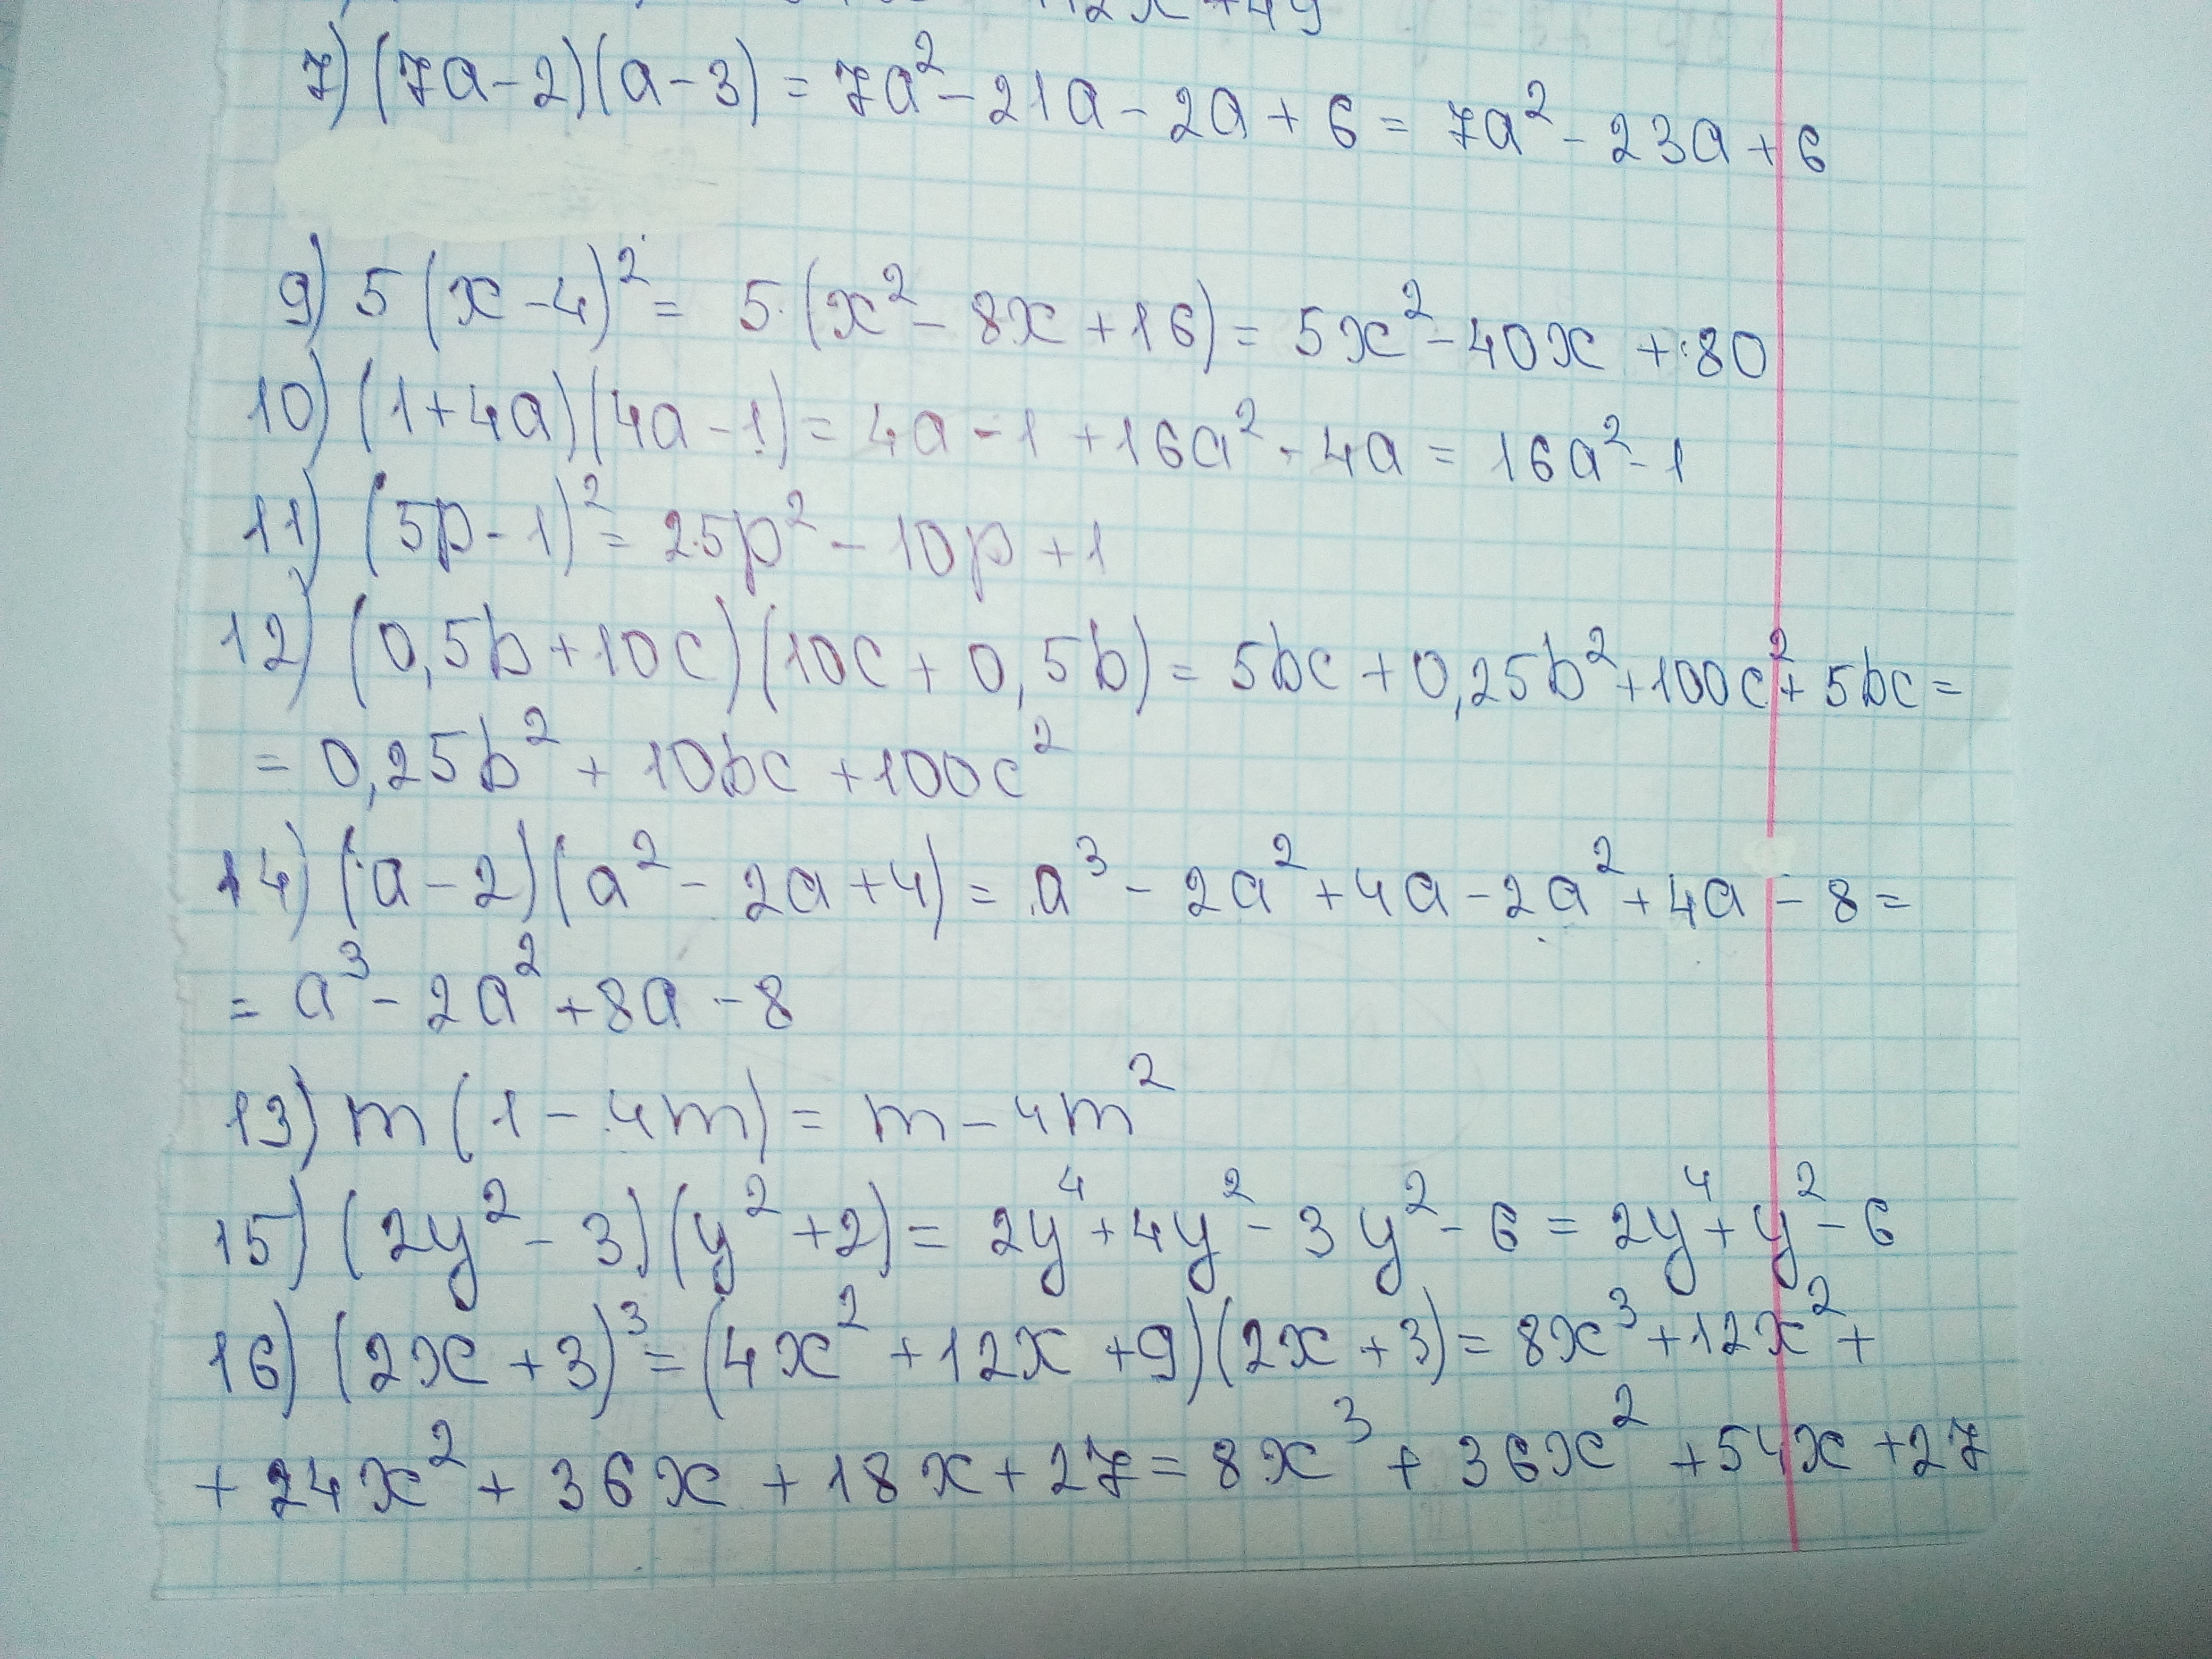 12x+49
7) (7a-2)(a-3) = 7a² - 21a - 2a + 6 = 7a² - 23a + 6
9) 5(x-4)² = 5·(x² - 8x + 16) = 5x² - 40x + 80
10) (1+4a)(4a-1) = 4a - 1 + 16a² - 4a = 16a² - 1
11) (5p-1)² = 25p² - 10p + 1
12) (0,5b+10c)(10c+0,5b) = 5bc + 0,25b² + 100c² + 5bc =
= 0,25b² + 10bc + 100c²
14) (a-2)(a² - 2a + 4) = a³ - 2a² + 4a - 2a² + 4a - 8 =
= a³ - 2a² + 8a - 8
13) m(1-4m) = m - 4m²
15) (2y² - 3)(y² + 2) = 2y⁴ + 4y² - 3y² - 6 = 2y⁴ + y² - 6
16) (2x+3)³ = (4x² + 12x + 9)(2x+3) = 8x³ + 12x² +
+ 24x² + 36x + 18x + 27 = 8x³ + 36x² + 54x + 27